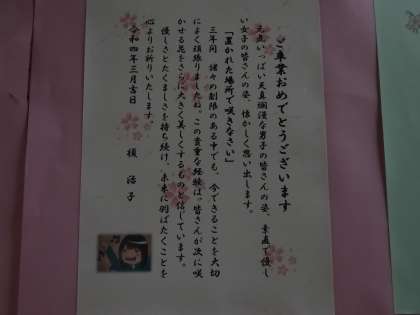 ご卒業おめでとうございます
元気いっぱい天真爛漫な男子の皆さんの姿、素直で優し
い女子の皆さんの姿、懐かしく思い出します。
「置かれた場所で咲きなさい」
三年間、諸々の制限のある中でも、今できることを大切
によく頑張りましたね。この貴重な経験は、皆さんが次に咲
かせる花をさらに大きく美しくするものと信じています。
優しさとたくましさを持ち続け、未来に羽ばたくことを
心よりお祈りいたします。
令和四年三月吉日
子